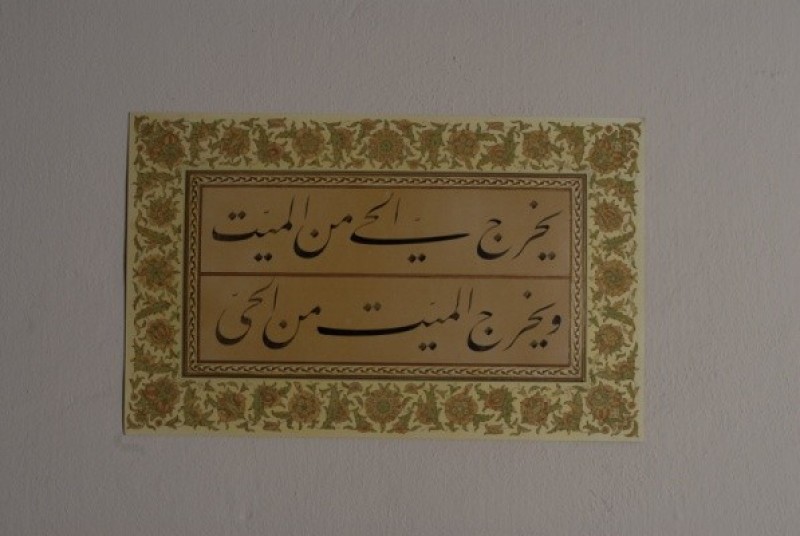 يخرج الحي من الميّت
ويخرج الميّت من الحيّ